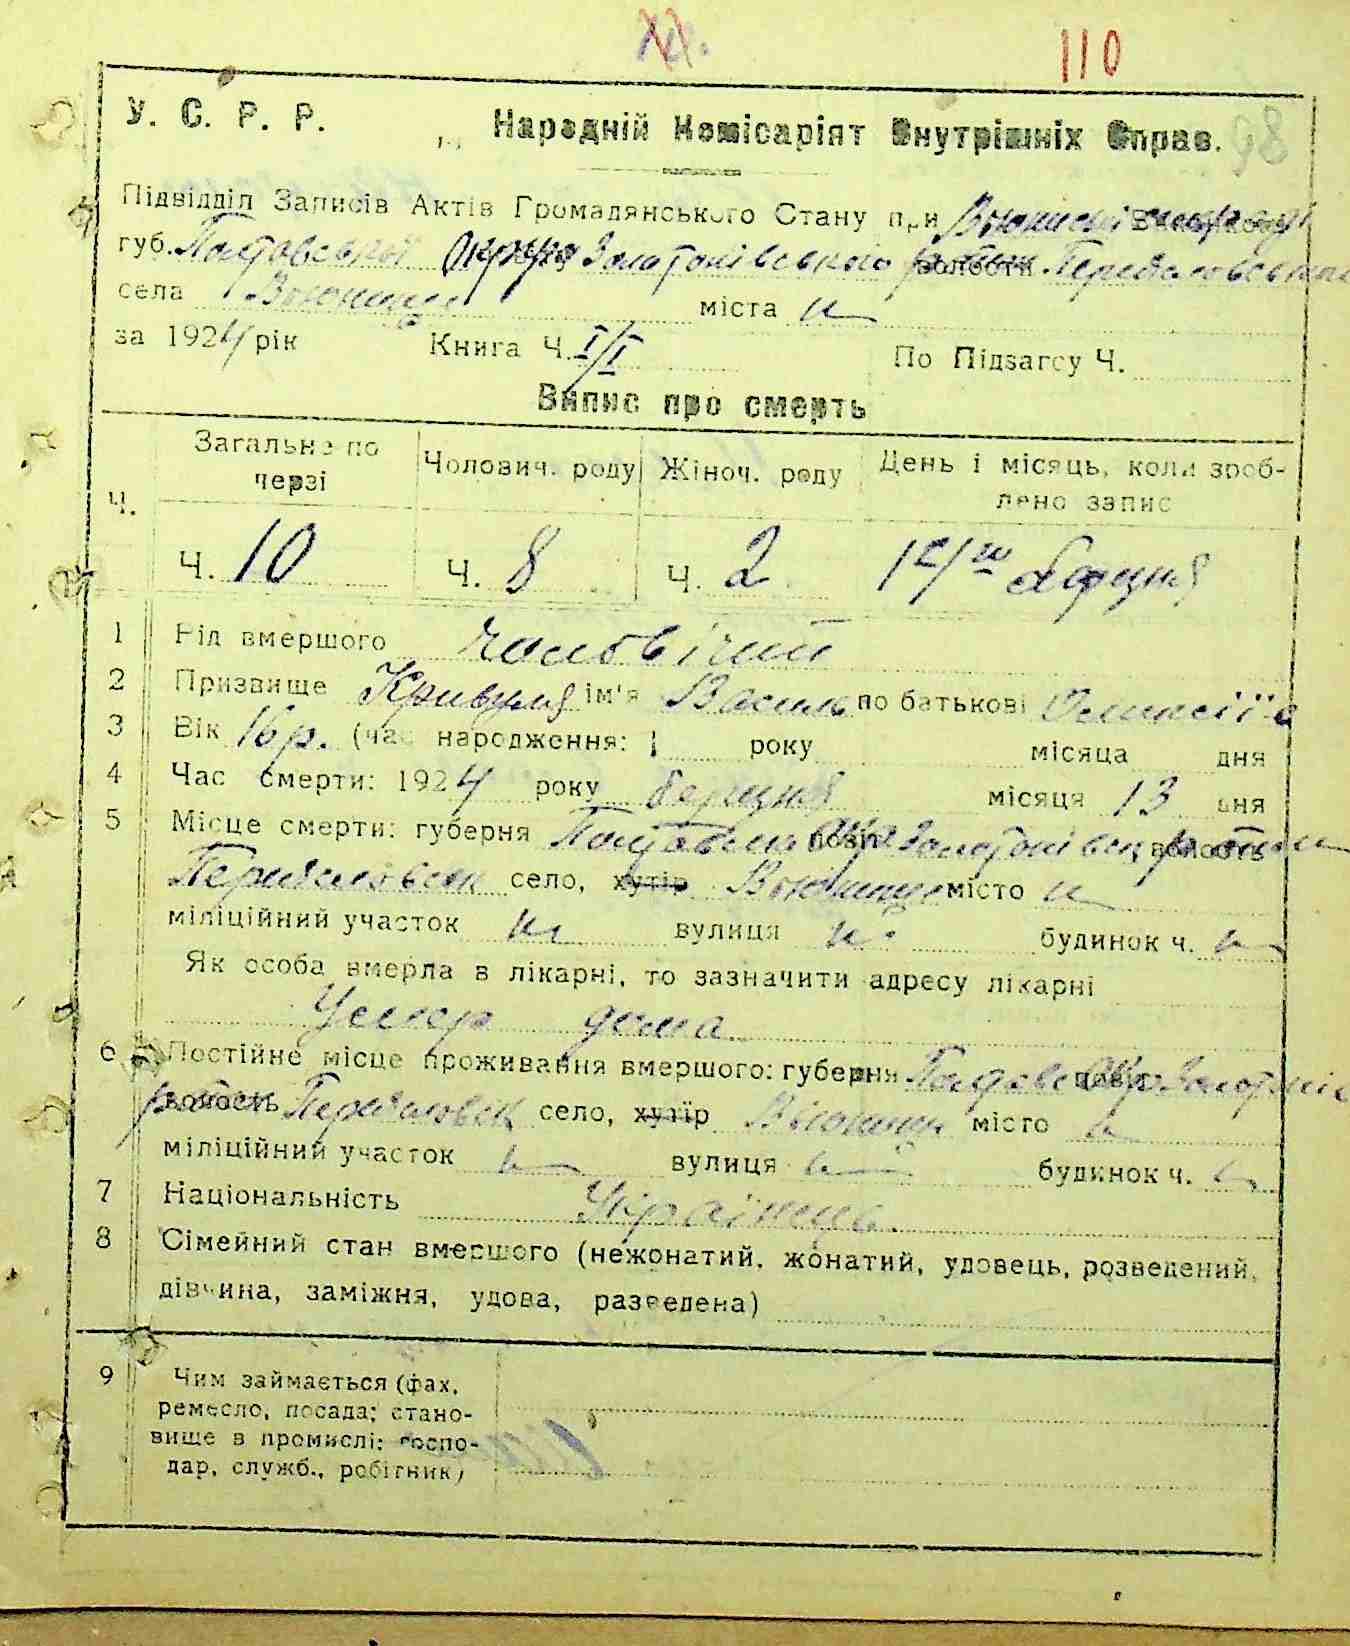 110
98
У. С. Р. Р. Народній Комісаріят Внутрішніх Справ.
Підвідділ Записів Актів Громадянського Стану при Вьюниські
губ. Полтавської Округа Золотонівського волости
села Вьюнище міста н
за 1924 рік Книга Ч. I/I По Підзагсу Ч.
Випис про смерть
Ч. Загальне по черзі Чолович. роду Жіноч. роду День і місяць, коли зроблено запис
Ч. 10 Ч. 8 Ч. 2 березня
1 Рід вмершого чоловічий
2 Призвище Кривуля ім'я Василь по батькові
3 Вік 16 р. (час народження: 1 року місяца дня
4 Час смерти: 1924 року березня місяця 13 дня
5 Місце смерти: губерня Полтавська повіт волость
село, хутір Вьюнище місто н
міліційний участок н вулиця н. будинок ч. н
Як особа вмерла в лікарні, то зазначити адресу лікарні
Умер дома
6 Постійне місце проживання вмершого: губерня повіт
волость село, хутір Вьюнищ місто н
міліційний участок н вулиця н будинок ч. н
7 Національність Українець.
8 Сімейний стан вмершого (нежонатий, жонатий, удовець, розведений,
дівчина, заміжня, удова, разведена)
9 Чим займається (фах,
ремесло, посада; стано-
вище в промислі: госпо-
дар, служб., робітник)